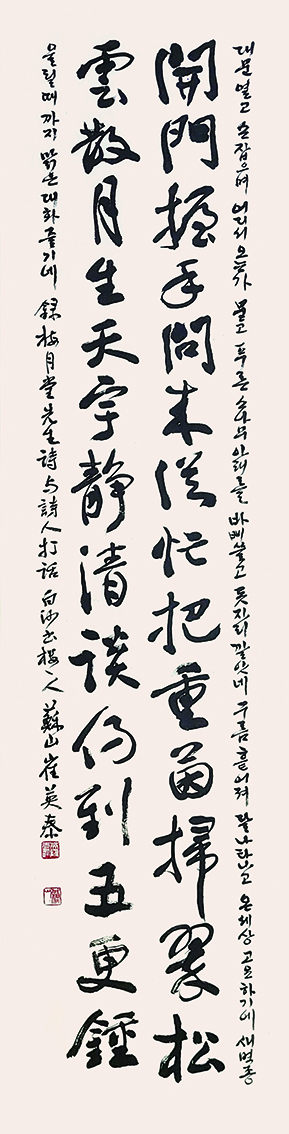 대문 열고 손 잡으며 어디서 오는가 묻고 푸른 소나무 아래를 바삐 쓸고 돗자리 깔았네 구름 흩어져 달 나타나고 온 세상 고요하기에 새벽종
開門握手問來從忙把重茵掃翠松
雲散月生天宇靜清談仍到五更鍾
울릴 때까지 맑은 대화 즐기네 錄梅月堂先生詩 与詩人打話 白沙 人 蘇山 崔英泰